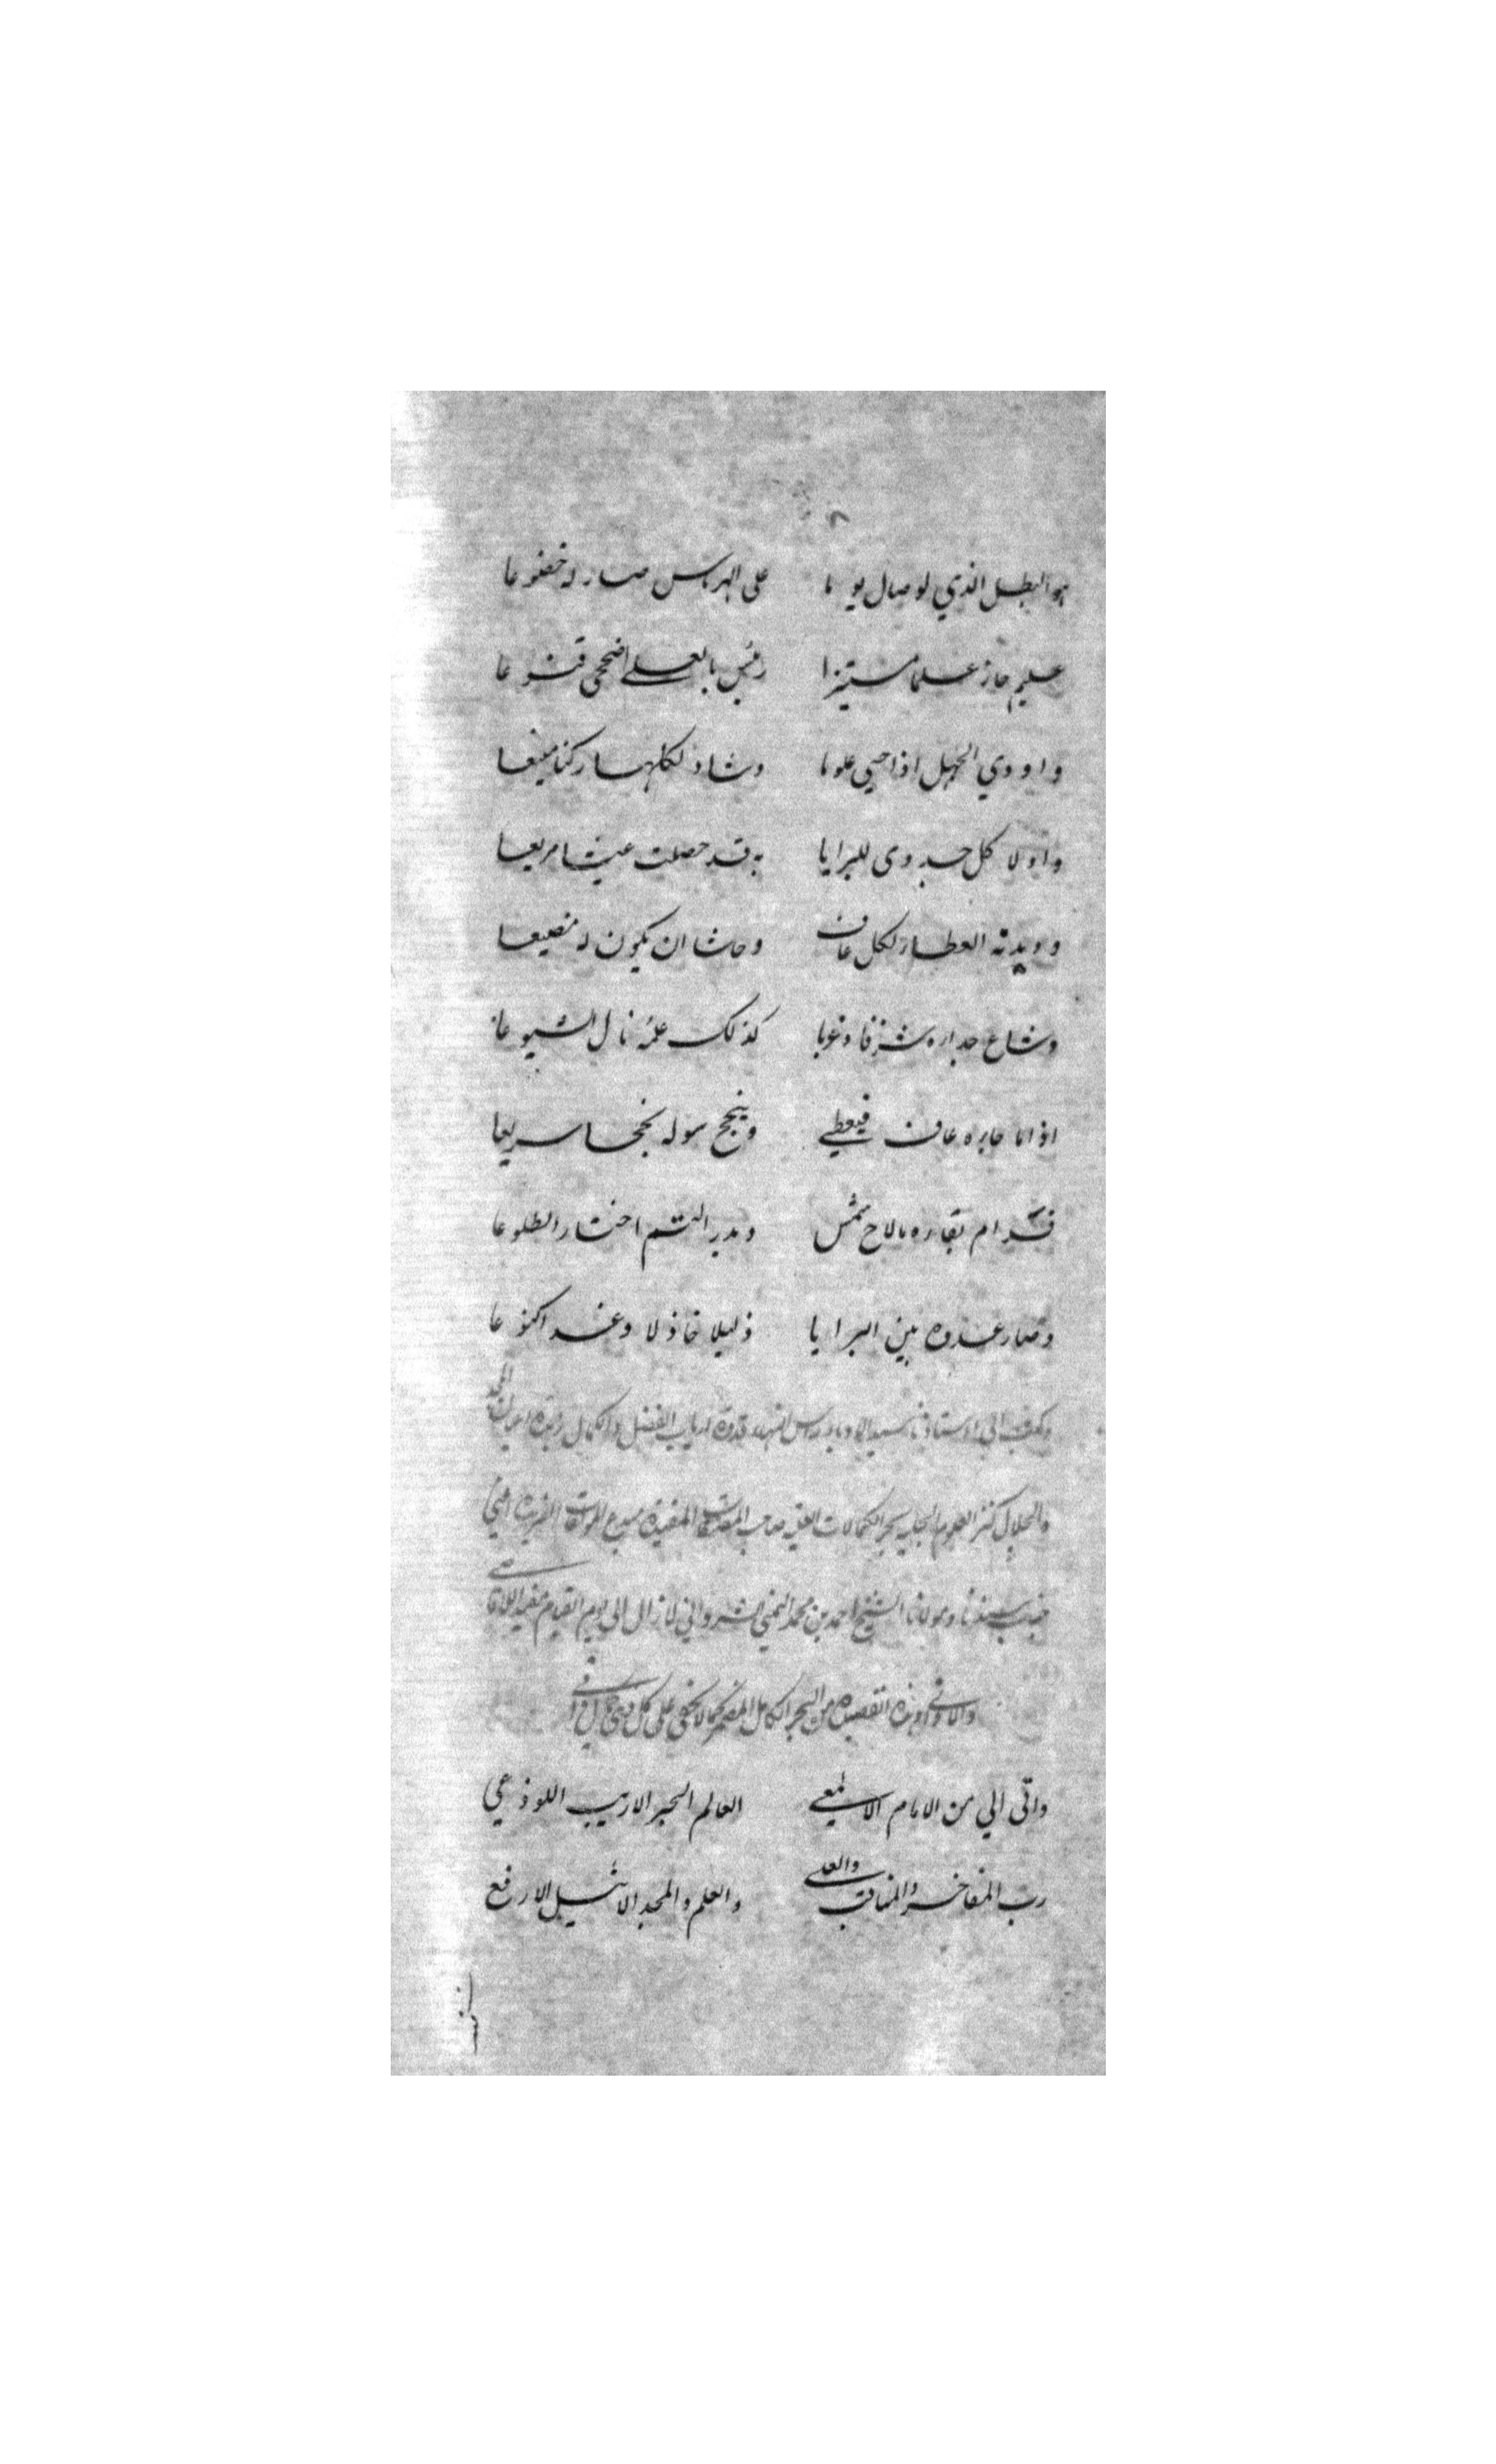 ٨
هو البطل الذي لو صال يوما على الهرماس صار له خضوعا
عليم حاز علما مستنيرا رئيس بالعلے اضحى قنوعا
واودي الجهل اذ احيي علوما وشاد لكلها ركنا منيعا
واولا كل جدوى للبرايا به قد حصلت غيثا مريعا
وديدنه العطا لكل عاف وحاشا ان يكون له مضيعا
وشاع جداره شرقا وغربا كذلك علمه نال الشيوعا
اذا ما جاءه عاف فيعطے وينجح سوله نجحا سريعا
فدام بقاءه ما لاح شمس وبدر التم اختار الطلوعا
وصار عدوه بين البرايا ذليلا خاذلا وغدا كنوعا
وكتب الي استاذنا سيد الادباء راس النبلاء قدوة ارباب الفضل والكمال زبدة اعيان المجد
والجلال كنز العلوم الجليه بحر الكمالات العليه صاحب المصنفات المفيدة مبدع المولفات الفريدة اعني
جناب سيدنا ومولانا الشيخ احمد بن محمد اليمني الشرواني لا زال الى يوم القيام مفيد اللقاصے
والداني وهذه القصيدة من البحر الكامل المضمر كما لا يخفى على كل ذي
واتى الي من الامام الالمعے العالم الحبر الاريب اللوذعي
رب المفاخر والمناقب والعلے والعلم والمجد الاثيل الارفع